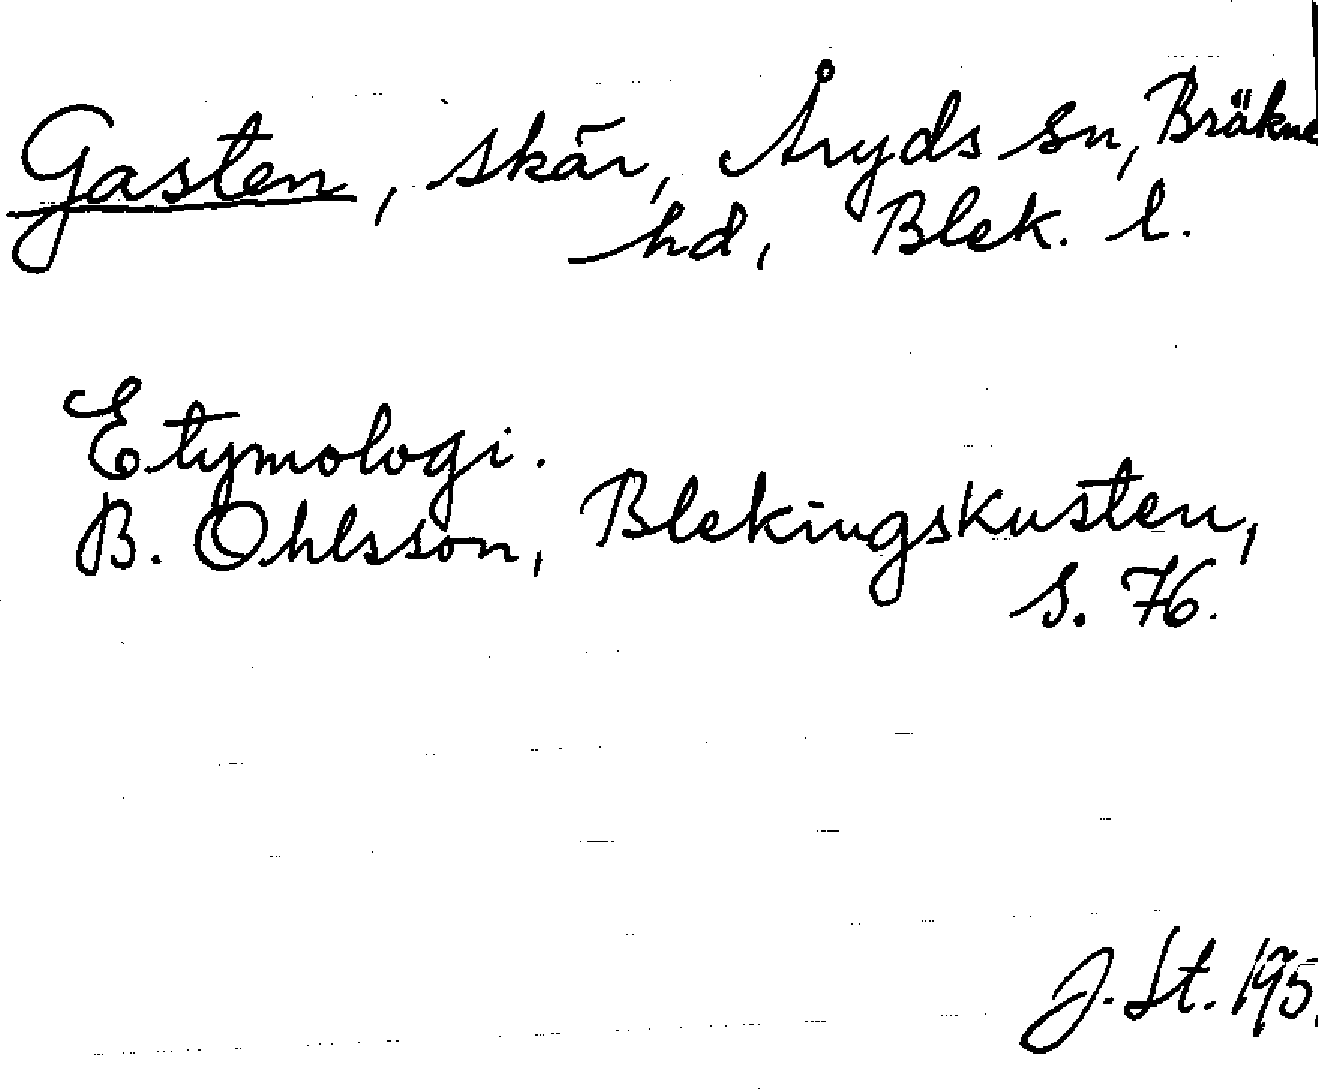 Gasten, skär, Åryds sn, Bräkne
hd, Blek. l.
Etymologi.
B. Ohlsson, Blekingskusten,
s. 76.
J. St. 195